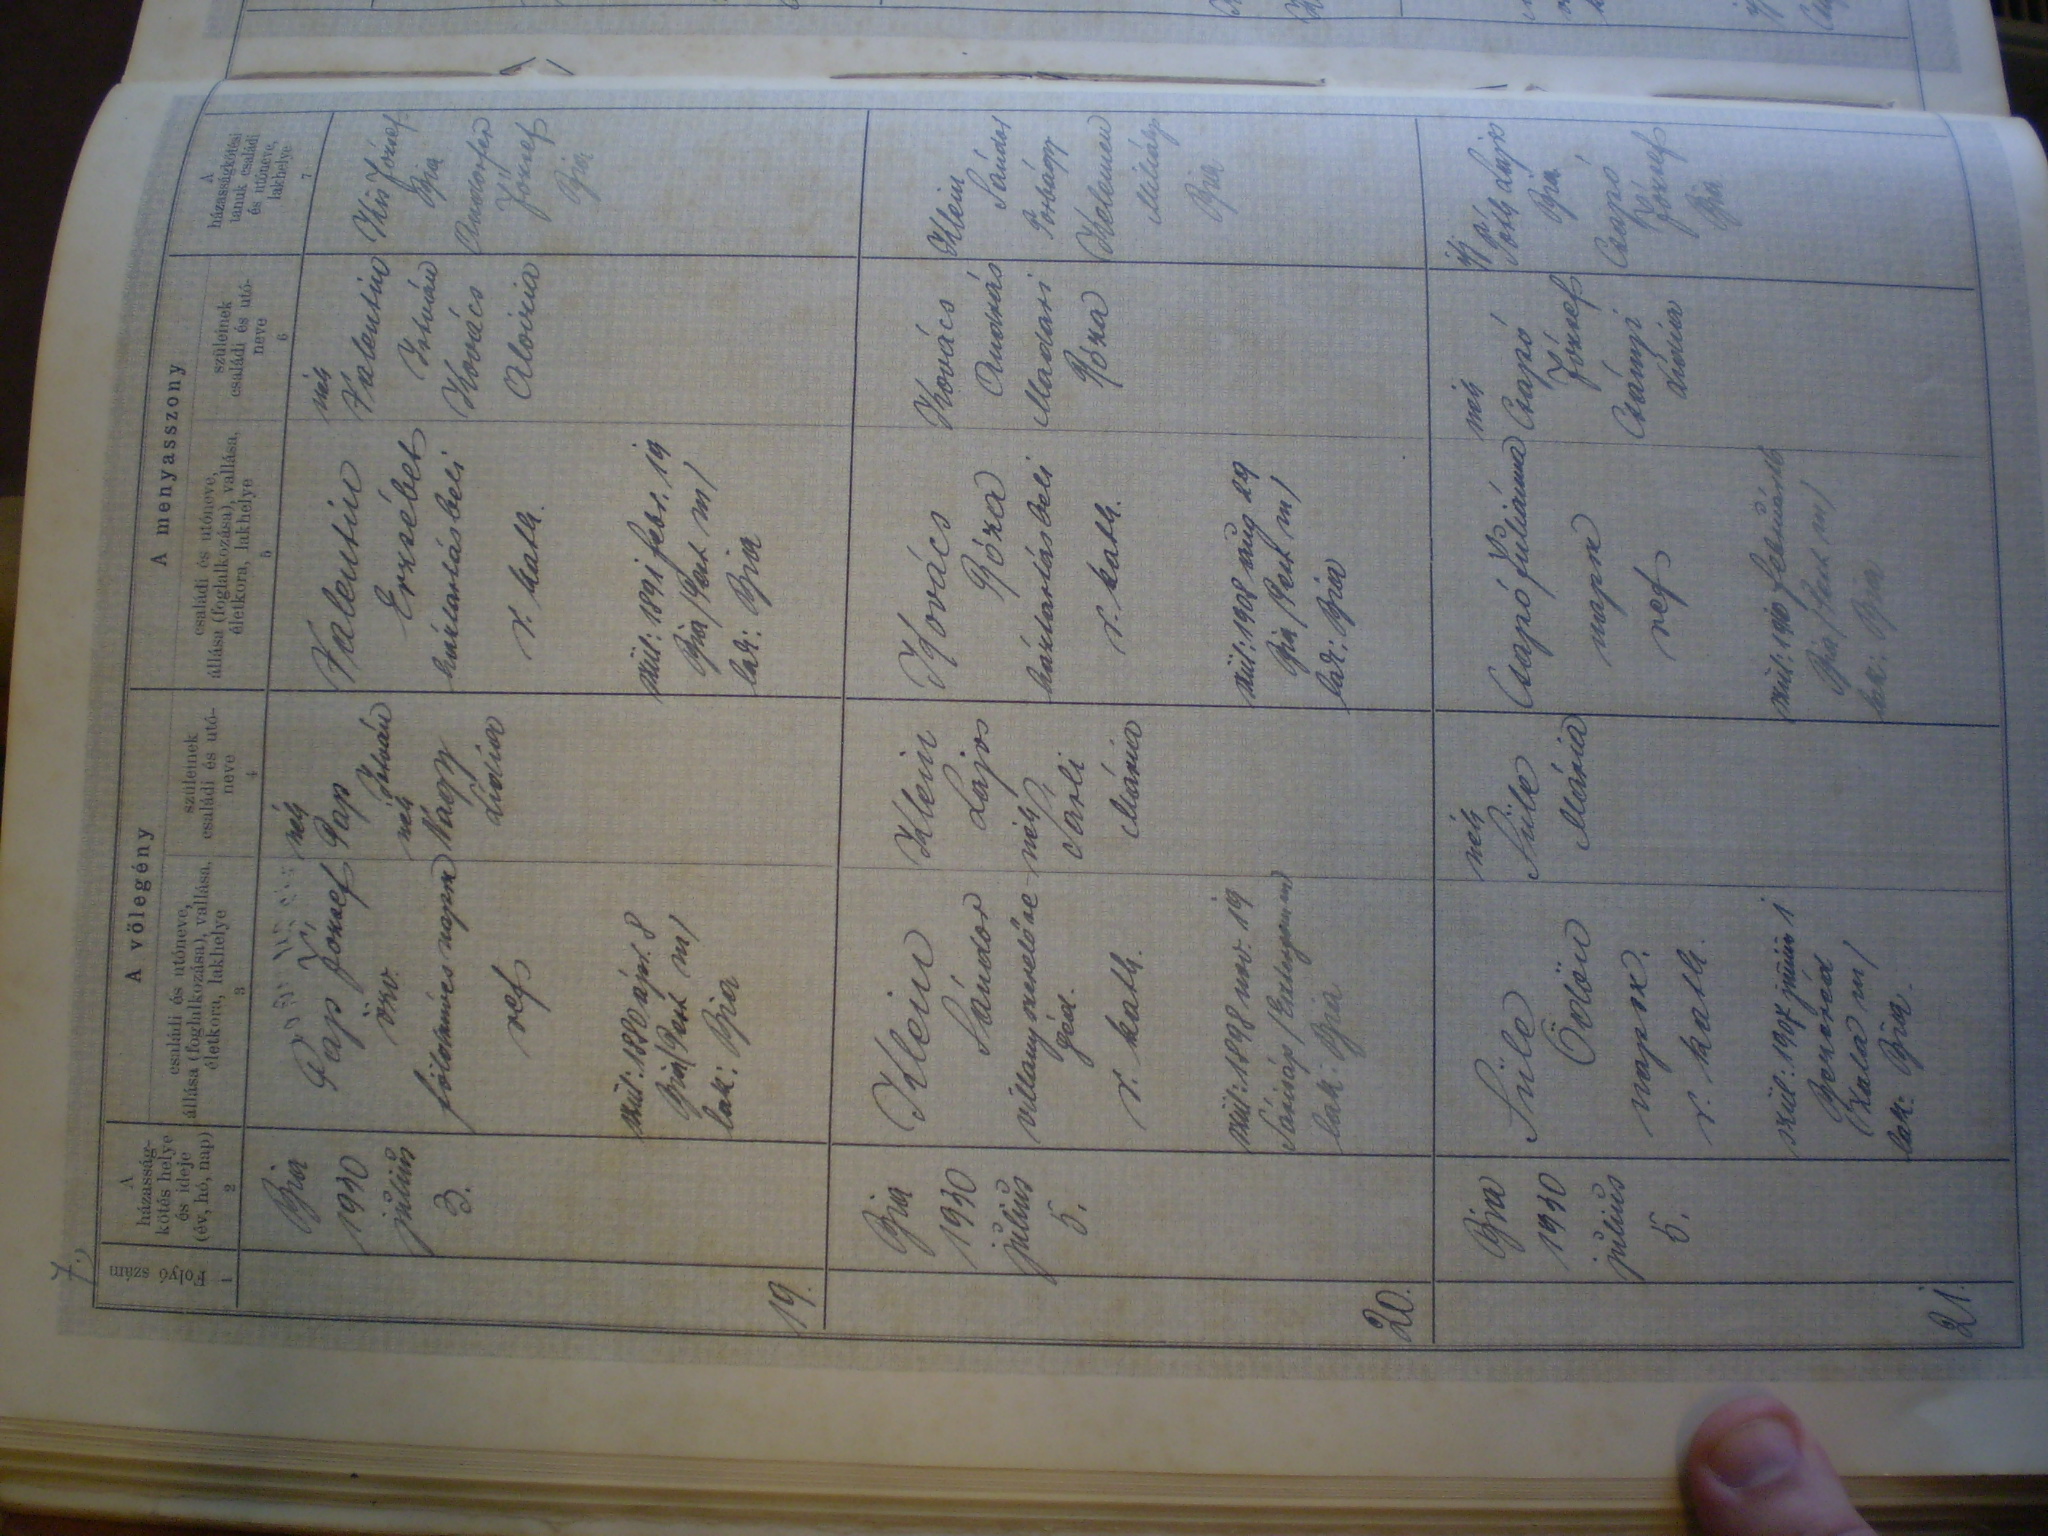 7.)
Folyó szám
A
házasság-
kötés helye
és ideje
(év, hó, nap)
A vőlegény
családi és utóneve,
állása (foglalkozása), vallása,
életkora, lakhelye
szüleinek
családi és utó-
neve
A menyasszony
családi és utóneve,
állása (foglalkozása), vallása,
életkora, lakhelye
szüleinek
családi és utó-
neve
A
házasságkötési
tanuk családi
és utóneve,
lakhelye
1
2
3
4
5
6
7
19.
Bia
1930
július
3.
Pap József
özv.
földmíves napsz
ref
szül: 1880 ápr. 8
Bia /Pest m/
lak: Bia
néh
Pap
István
néh
Nagy
Lidia
Valentin
Erzsébet
háztartásbeli
r. kath.
szül: 1891 febr. 19
Bia /Pest m/
lak: Bia
néh
Valentin
István
Kovács
Aloizia
Kiss József
Bia
József
Bia
20.
Bia
1930
július
5.
Klein
Sándor
villanyszerelőse-
géd.
r. kath.
szül: 1898 nov. 19
Sárisáp /Esztergom m/
lak: Bia
Klein
Lajos
néh
Sárli
Mária
Kovács
Róza
háztartásbeli
r. kath.
szül: 1908 aug 29
Bia /Pest m/
lak: Bia
Kovács
András
Madari
Róza
Klein
Sándor
Torbágy
Kelemen
Mihály
Bia
21.
Bia
1930
július
5.
Süle
Ödön
napsz.
r. kath.
szül: 1907 június 1
(Zala m/
lak: Bia.
néh
Süle
Mária
Csapó Juliánna
napsz
ref
szül: 1910 február
Bia /Pest m/
lak: Bia
néh
Csapó
József
Csányi
Lidia
ifj
Tóth Lajos
Bia
Csapó
József
Bia